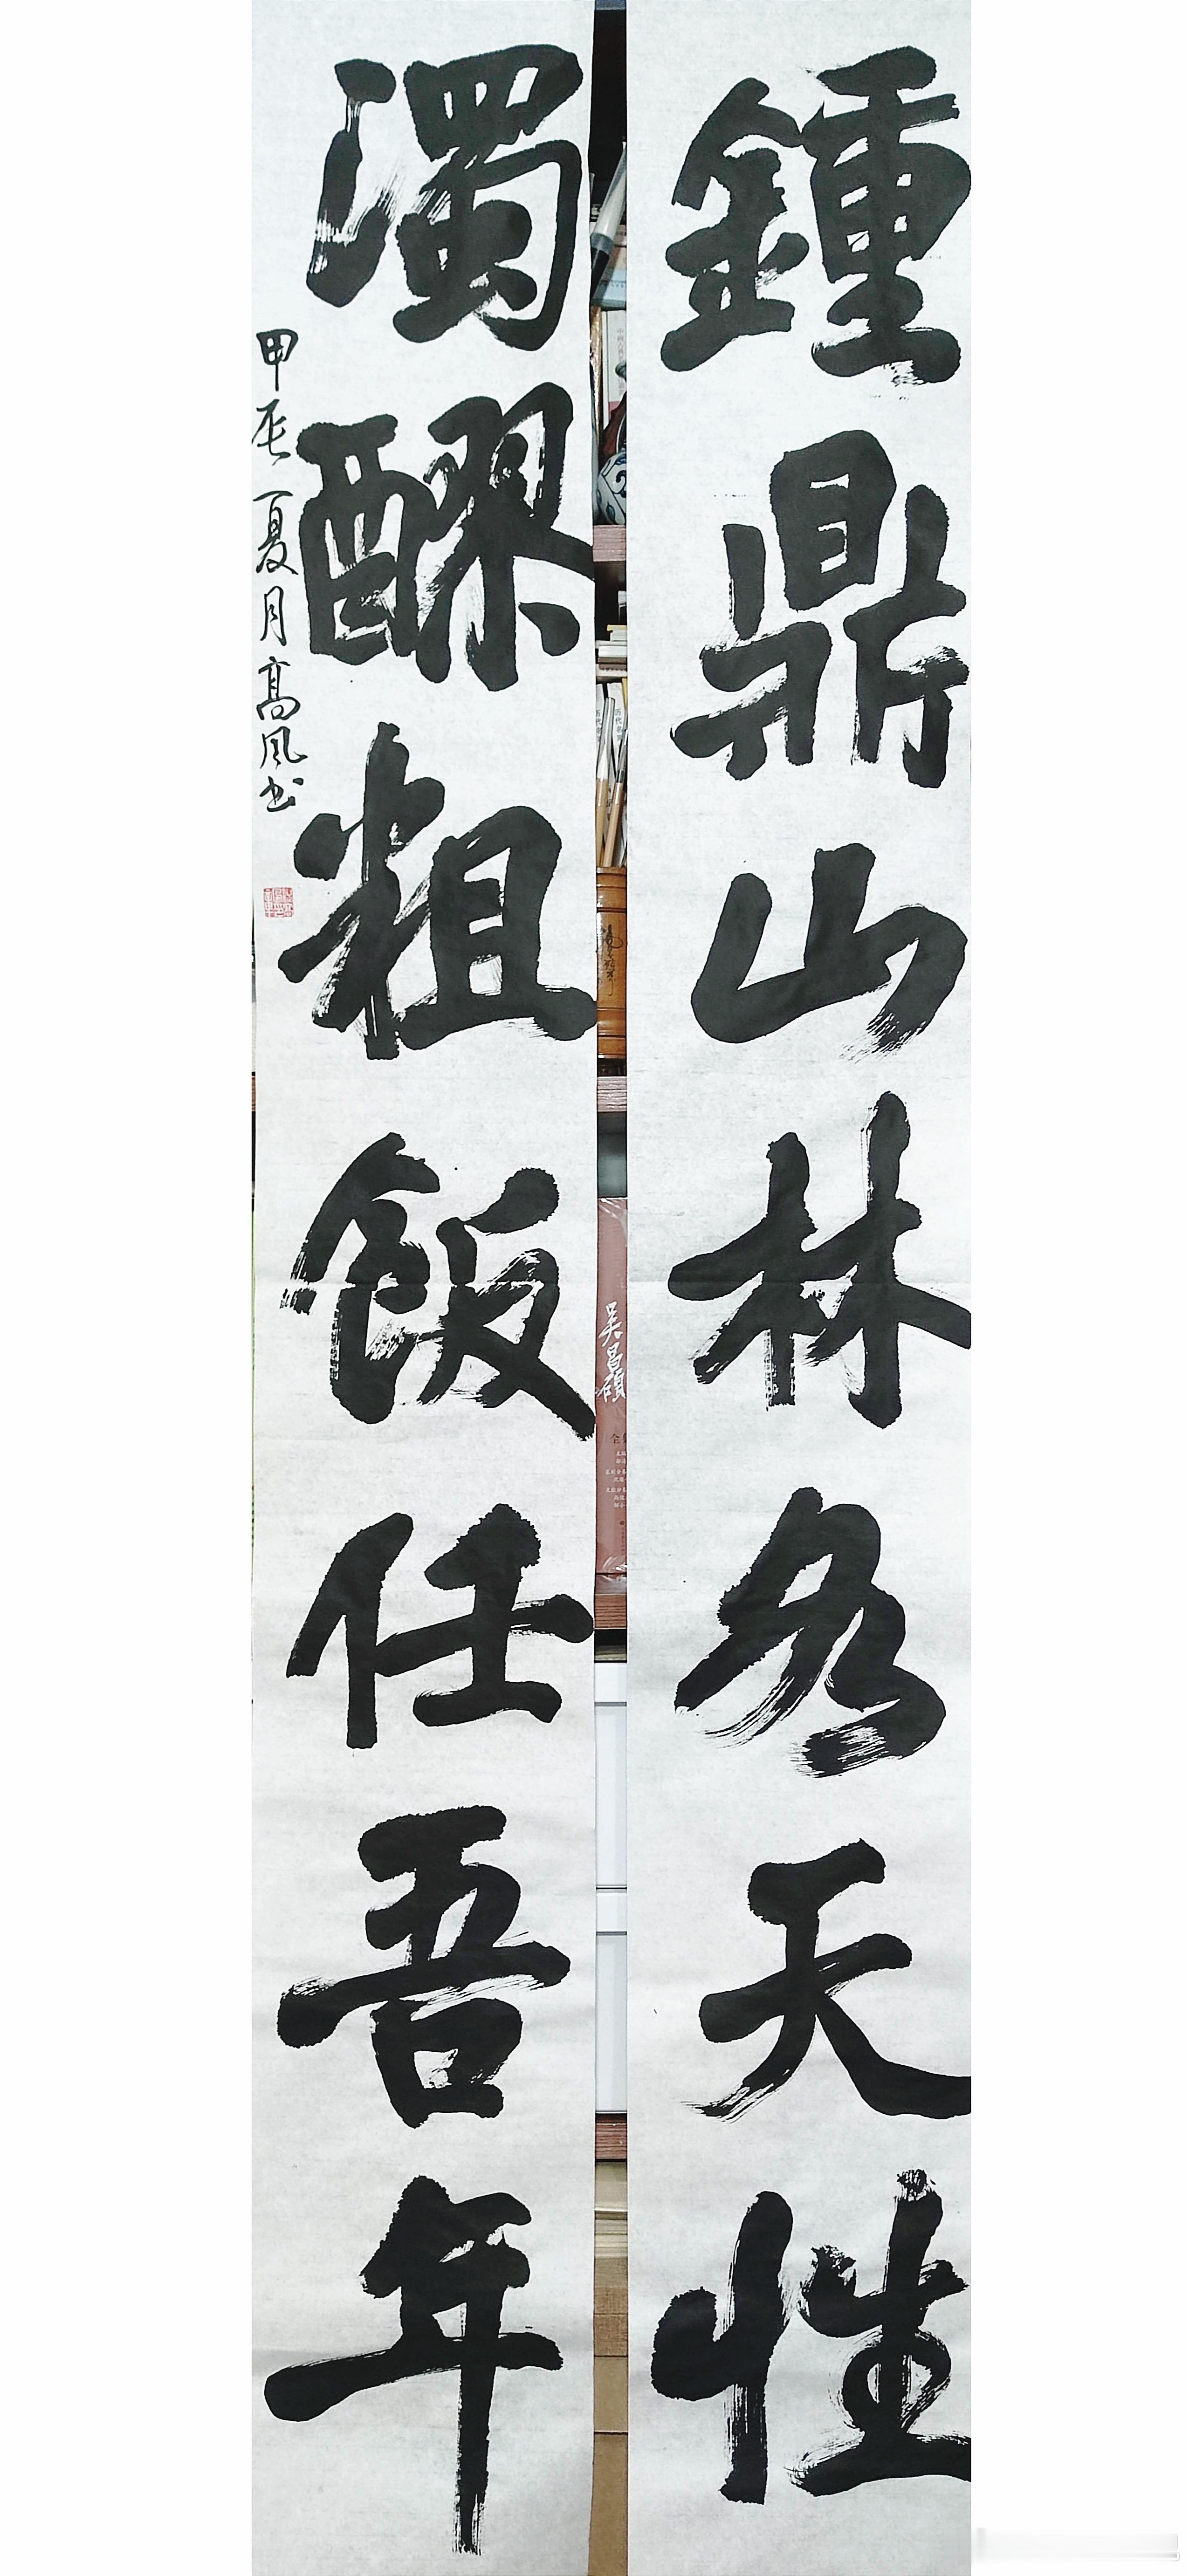 鍾鼎山林各天性
濁醪粗飯任吾年
甲辰夏月高风书
吴昌硕